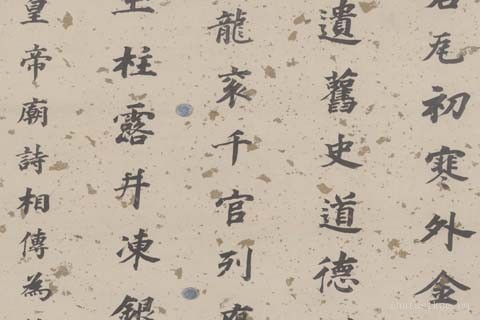 瓦初寒外金
遺舊史道德
龍袞千官列
玉柱露井凍銀
皇帝廟詩相傳為